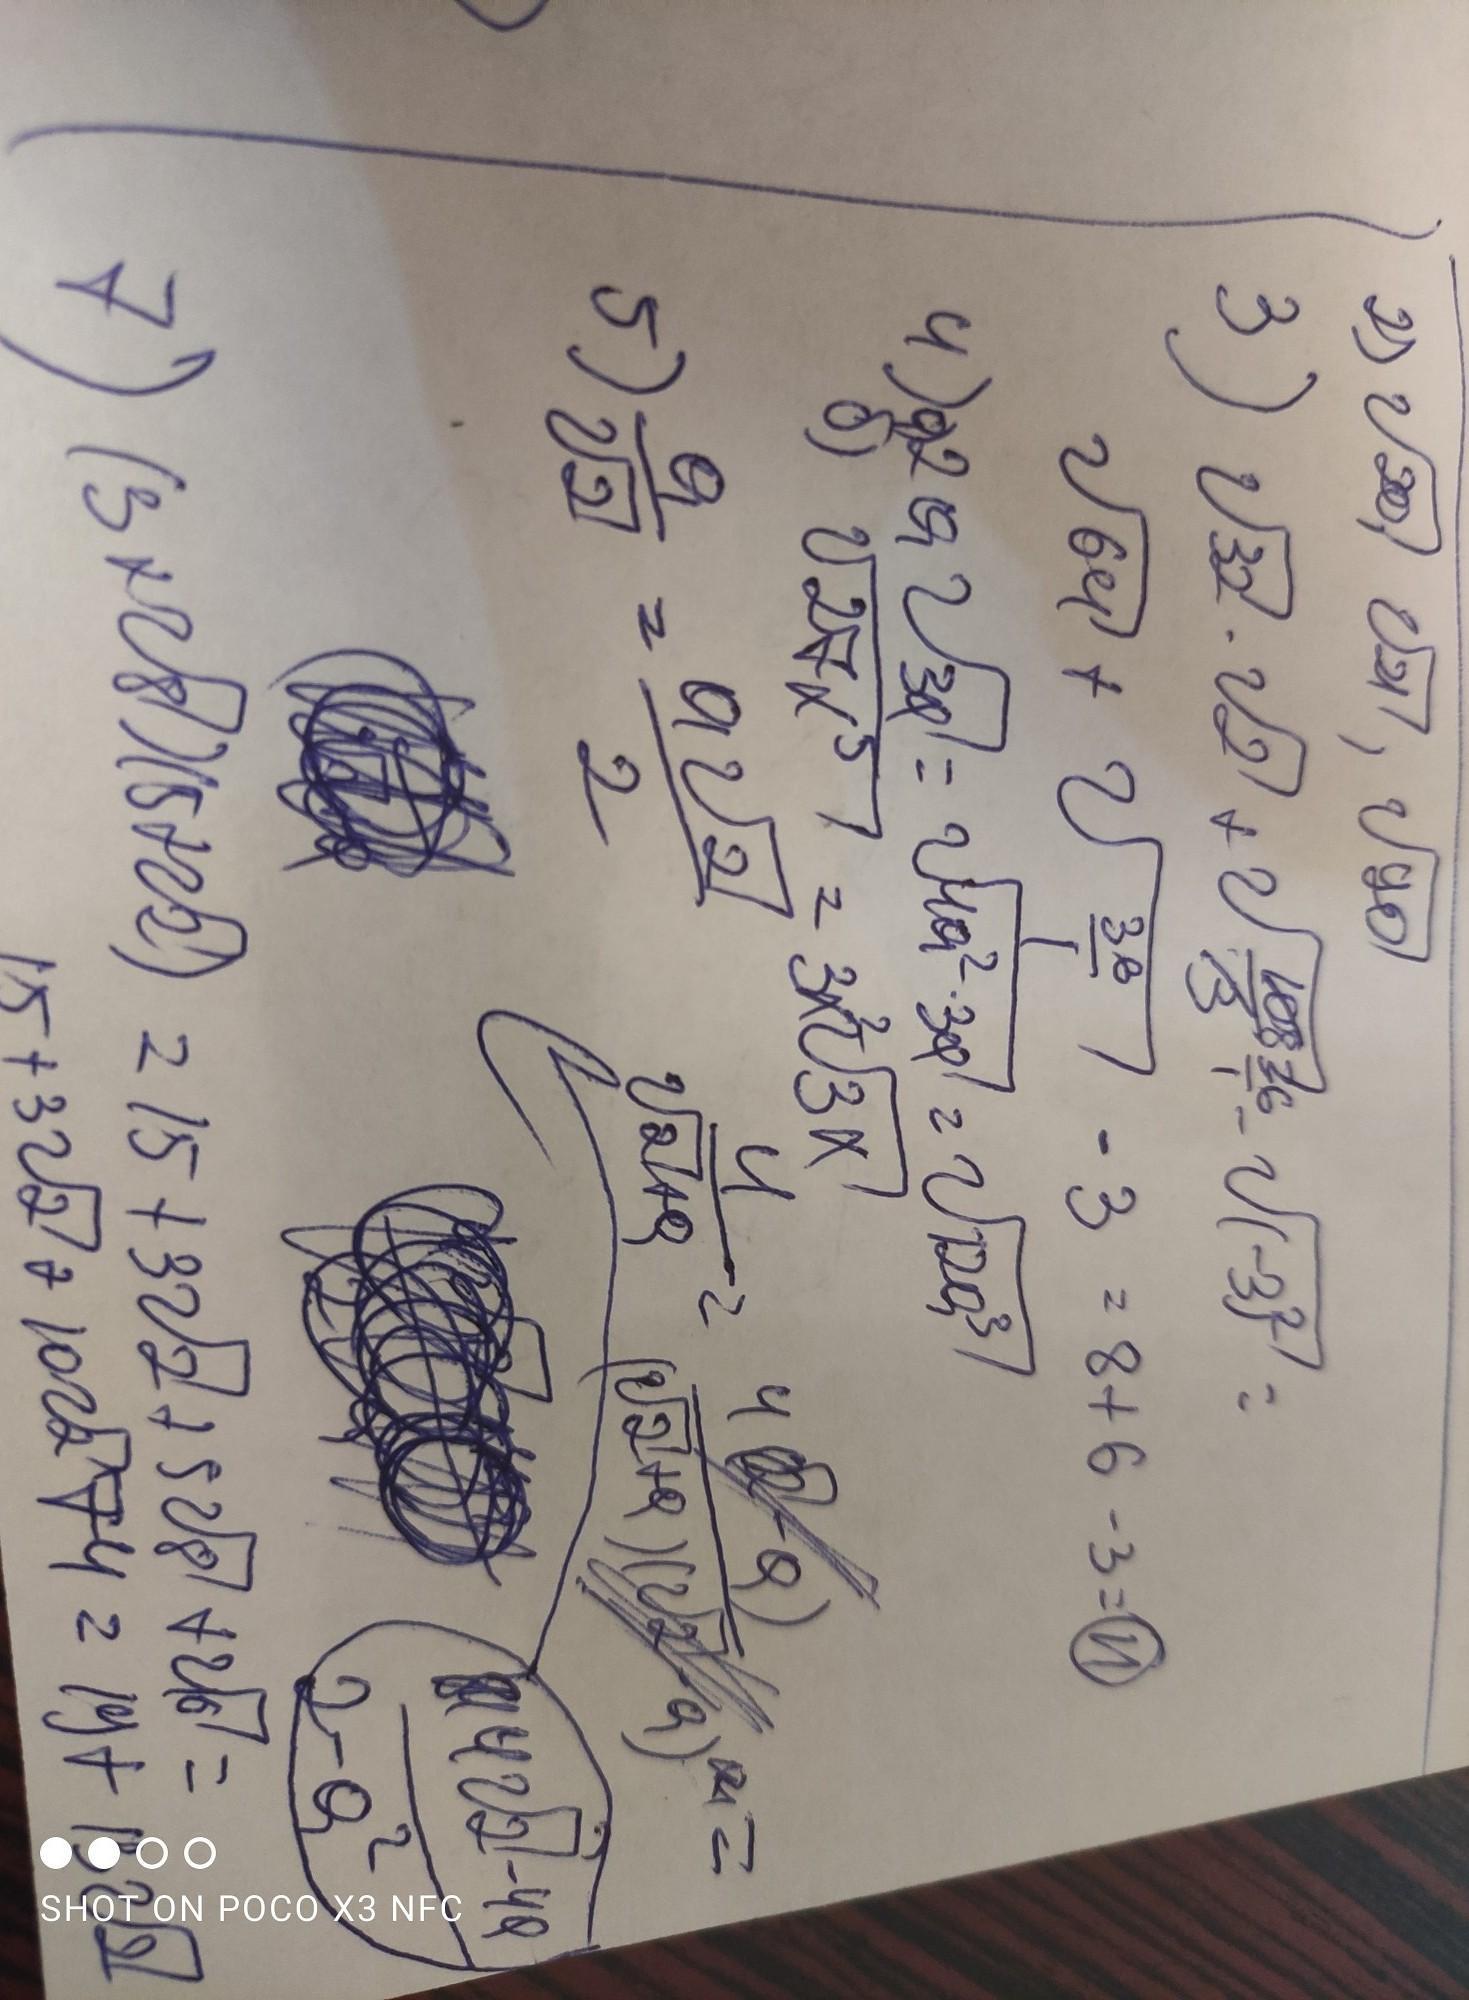 3) √32 · √2 + √108/3 36/1 - √(-3)² =
√64 + √36/1 - 3 = 8+6-3=11
4) а) 2a √3a = √4a²·3a = √12a³
б) √27x⁵ = 3x²√3x
5) a/√2 = a√2/2
4/√2+a = 4(√2-a)/(√2+a)(√2-a) =
4√2-4a/2-a²
7) (3+√8)(5+√2) = 15+3√2+5√8+√16 =
15+3√2+10√2+4 = 19+13√2
SHOT ON POCO X3 NFC